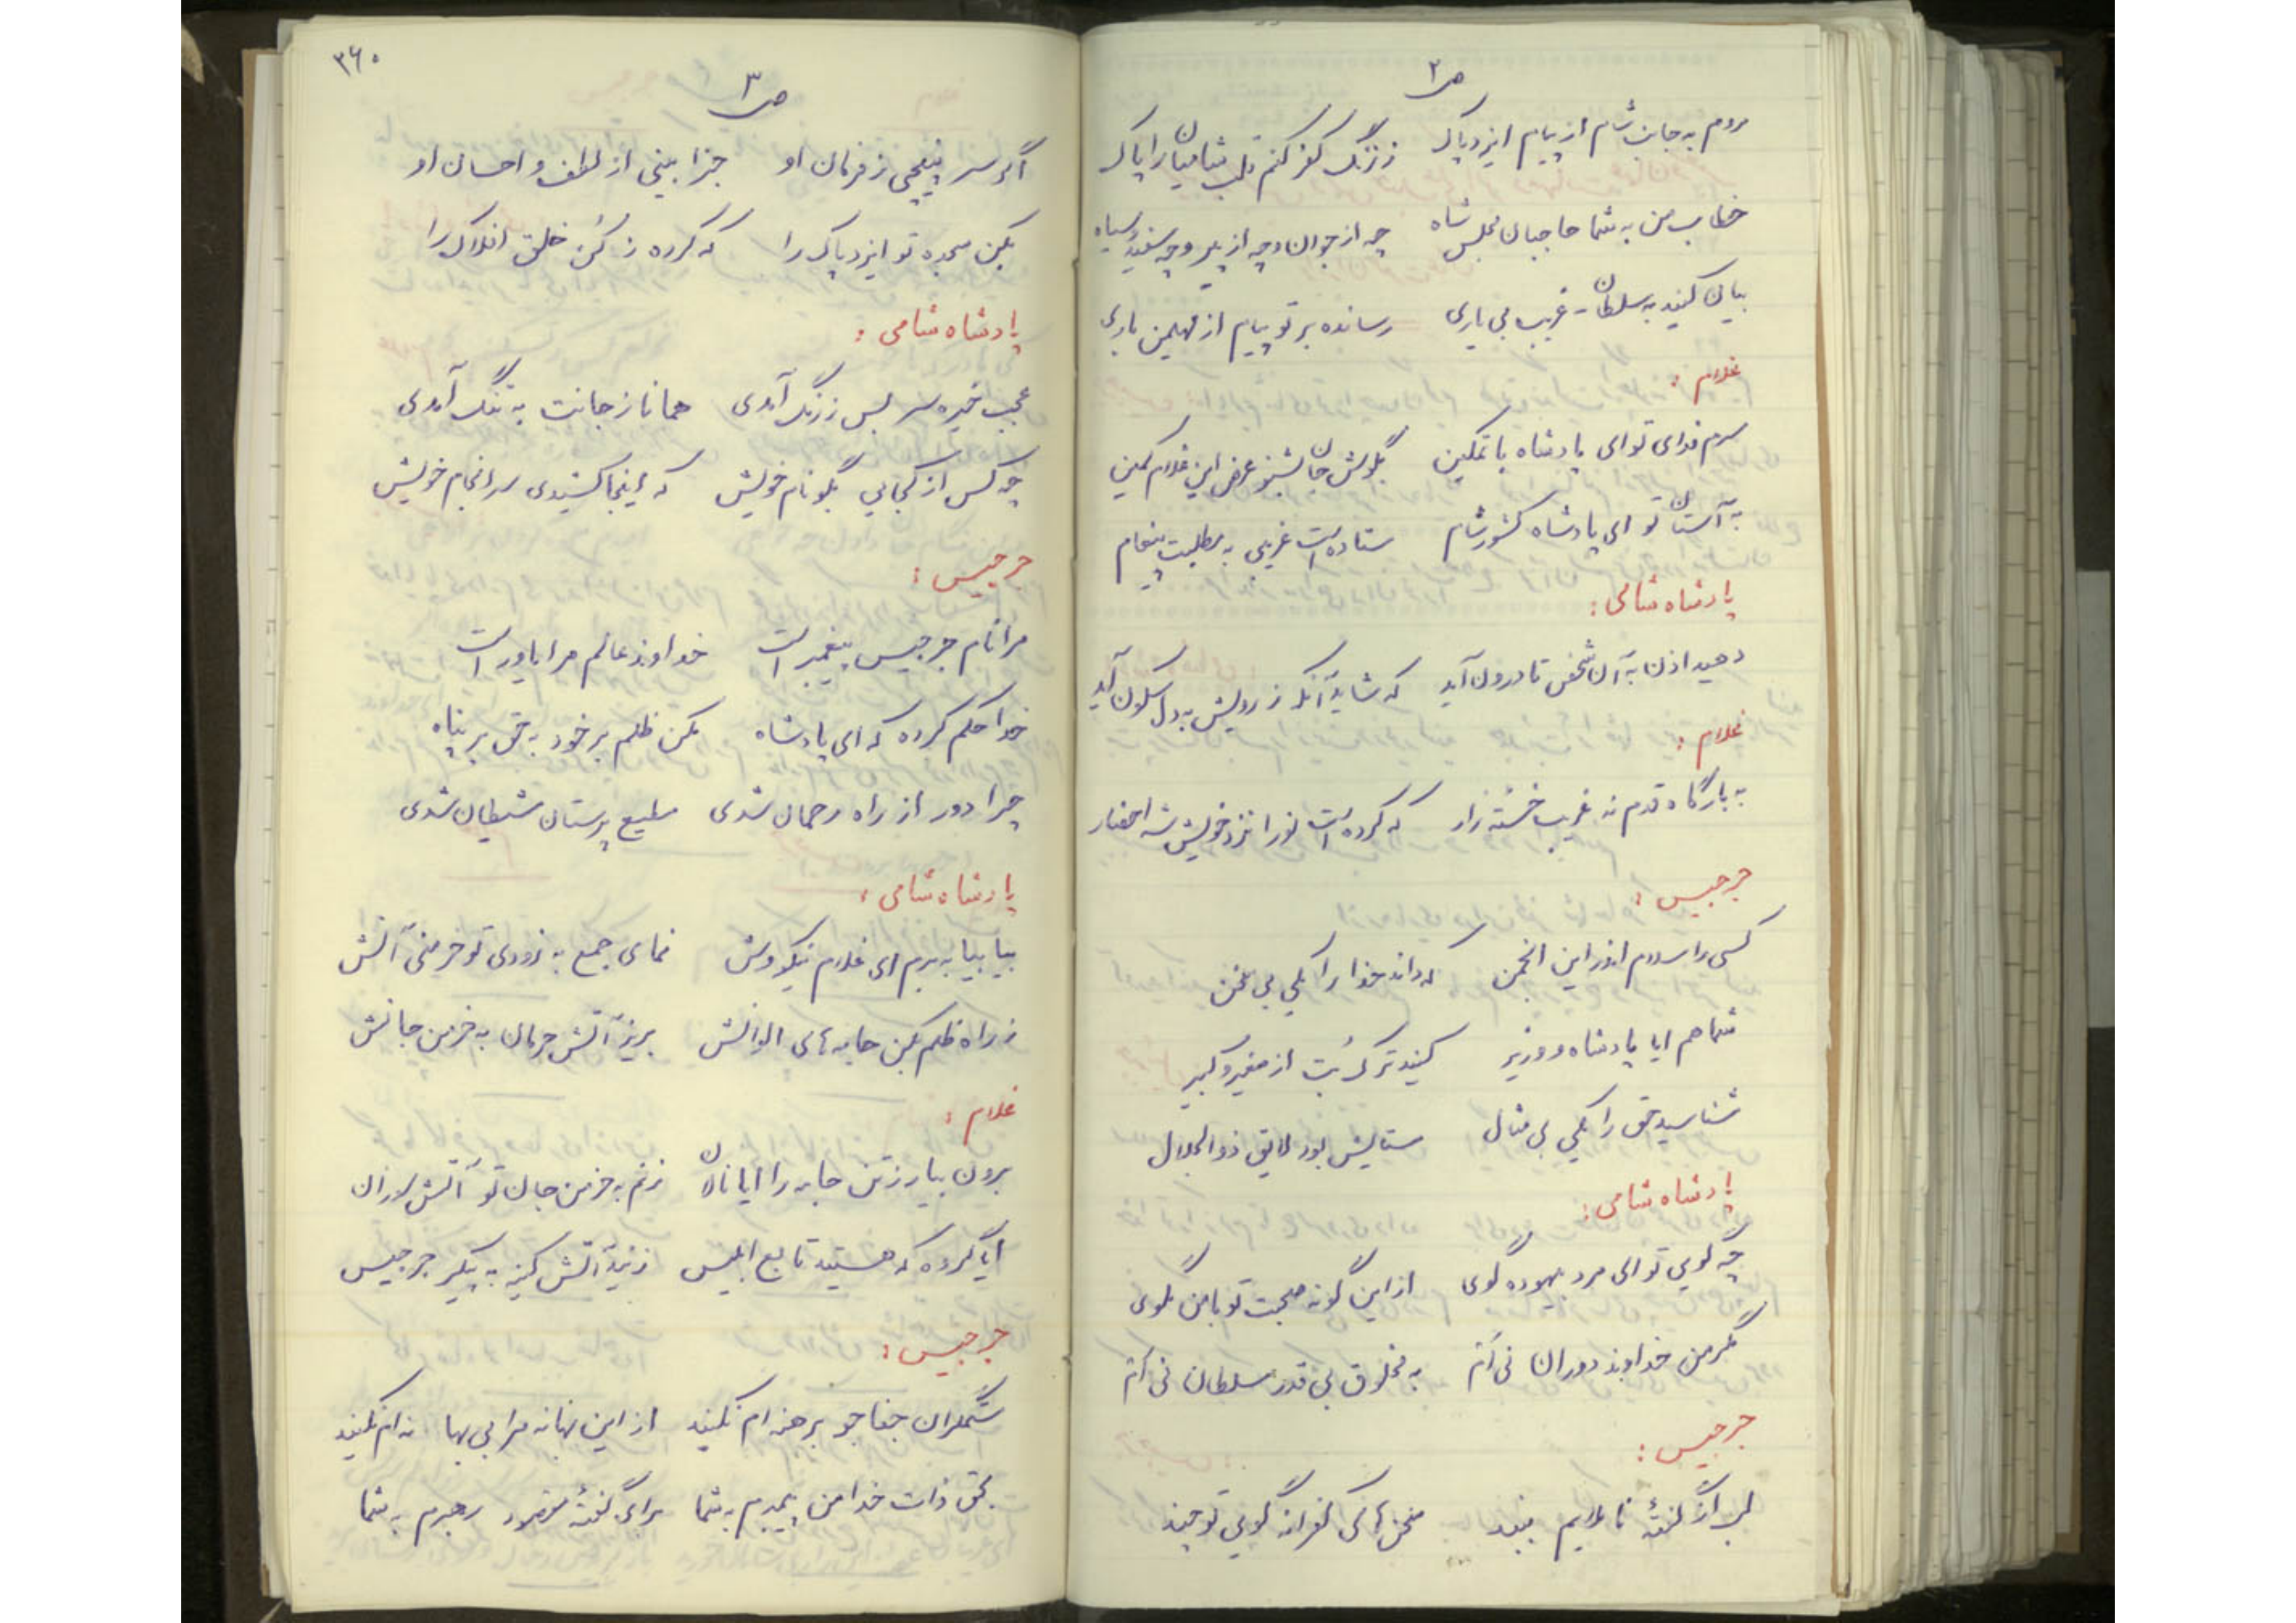 ص۲
روم به جانب شام از پیام ایزد پاک    ز زنگ کفر کنم قلب شامیان را پاک
خطاب من به شما حاجبان مجلس شاه    چه از جوان و چه از پیر و چه سفید و سیاه
بیان کنید به سلطان - غریب بی یاری    رسانده بر تو پیام از مهیمن باری
غلام :
سرم فدای تو ای پادشاه با تمکین    بگوش جان بشنو عرض این غلام کمین
به آستان تو ای پادشاه کشور شام    ستاده است غریبی به مطلبت پیغام
پادشاه شامی :
دهید اذن به آن شخص تا درون آید    که شاید آنکه ز رویش به دل سکون آید
غلام :
به بارگاه قدم نه غریب خسته زار    که کرده است تو را نزد خویش شه احضار
جرجیس :
کسی را سلام اندر این انجمن    که داند خدا را یکی بی سخن
شما هم ایا پادشاه و وزیر    کنید ترک بُت از صغیر و کبیر
شناسید حق را یکی بی مثال    ستایش بود لایق ذوالجلال
پادشاه شامی :
چه گویی تو ای مرد بیهوده گوی    از این گونه صحبت تو با من مگوی
مگر من خداوند دوران نی اَم    به مخلوق بی قدر سلطان نی اَم
جرجیس :
لب از گفتهٔ ناملایم ببند    سخن های کفرانه گویی تو چند
۳۶۰
ص۳
اگر سر نپیچی ز فرمان او    جزا بینی از لطف و احسان او
بکن سجده تو ایزد پاک را    که کرده ز کُن خلق افلاک را
پادشاه شامی :
عجب خیره سر بس زرنگ آمدی    همانا ز جانت به تنگ آمدی
چه کس از کجایی بگو نام خویش    که اینجا کشیدی سرانجام خویش
جرجیس :
مرا نام جرجیس پیغمبر است    خداوند عالم مرا یاور است
خدا حکم کرده که ای پادشاه    مکن ظلم بر خود به حق بر پناه
چرا دور از راه رحمان شدی    مطیع پرستان شیطان شدی
پادشاه شامی :
بیا بیا به برم ای غلام نیکووش    نمای جمع به زودی تو خرمنی آتش
ز راه ظلم بکن جامه های الوانش    بریز آتش حرمان به خرمن جانش
غلام :
برون بیار ز تن جامه را ایا نادان    زنم به خرمن جان تو آتش سوزان
ایا گروه که هستید تابع ابلیس    زنید آتش کینه به پیکر جرجیس
جرجیس :
ستمگران جفاجو برهنه ام نکنید    از این بهانه مرا بی بها نه ام نکنید
بحق ذات خدا من پیمبرم به شما    برای گفتهٔ مقصود رهبرم به شما